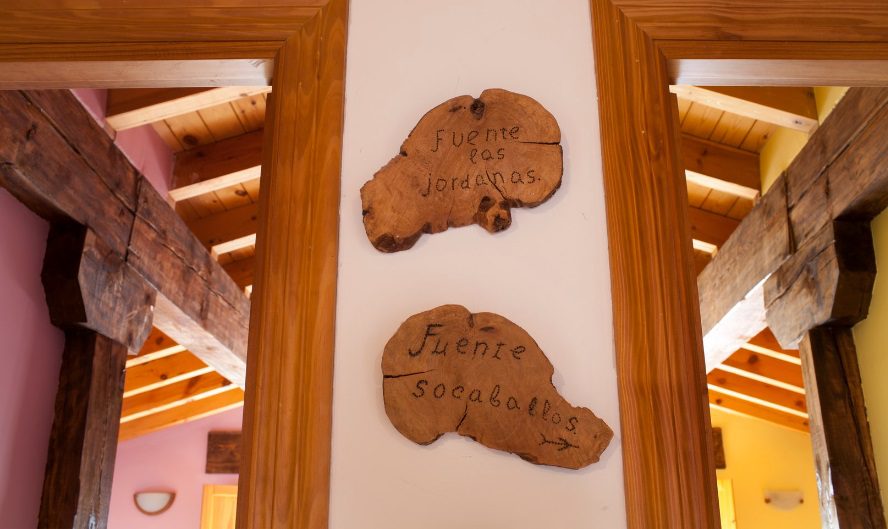 Fuente
las
jordanas.
Fuente
socaballos.
→